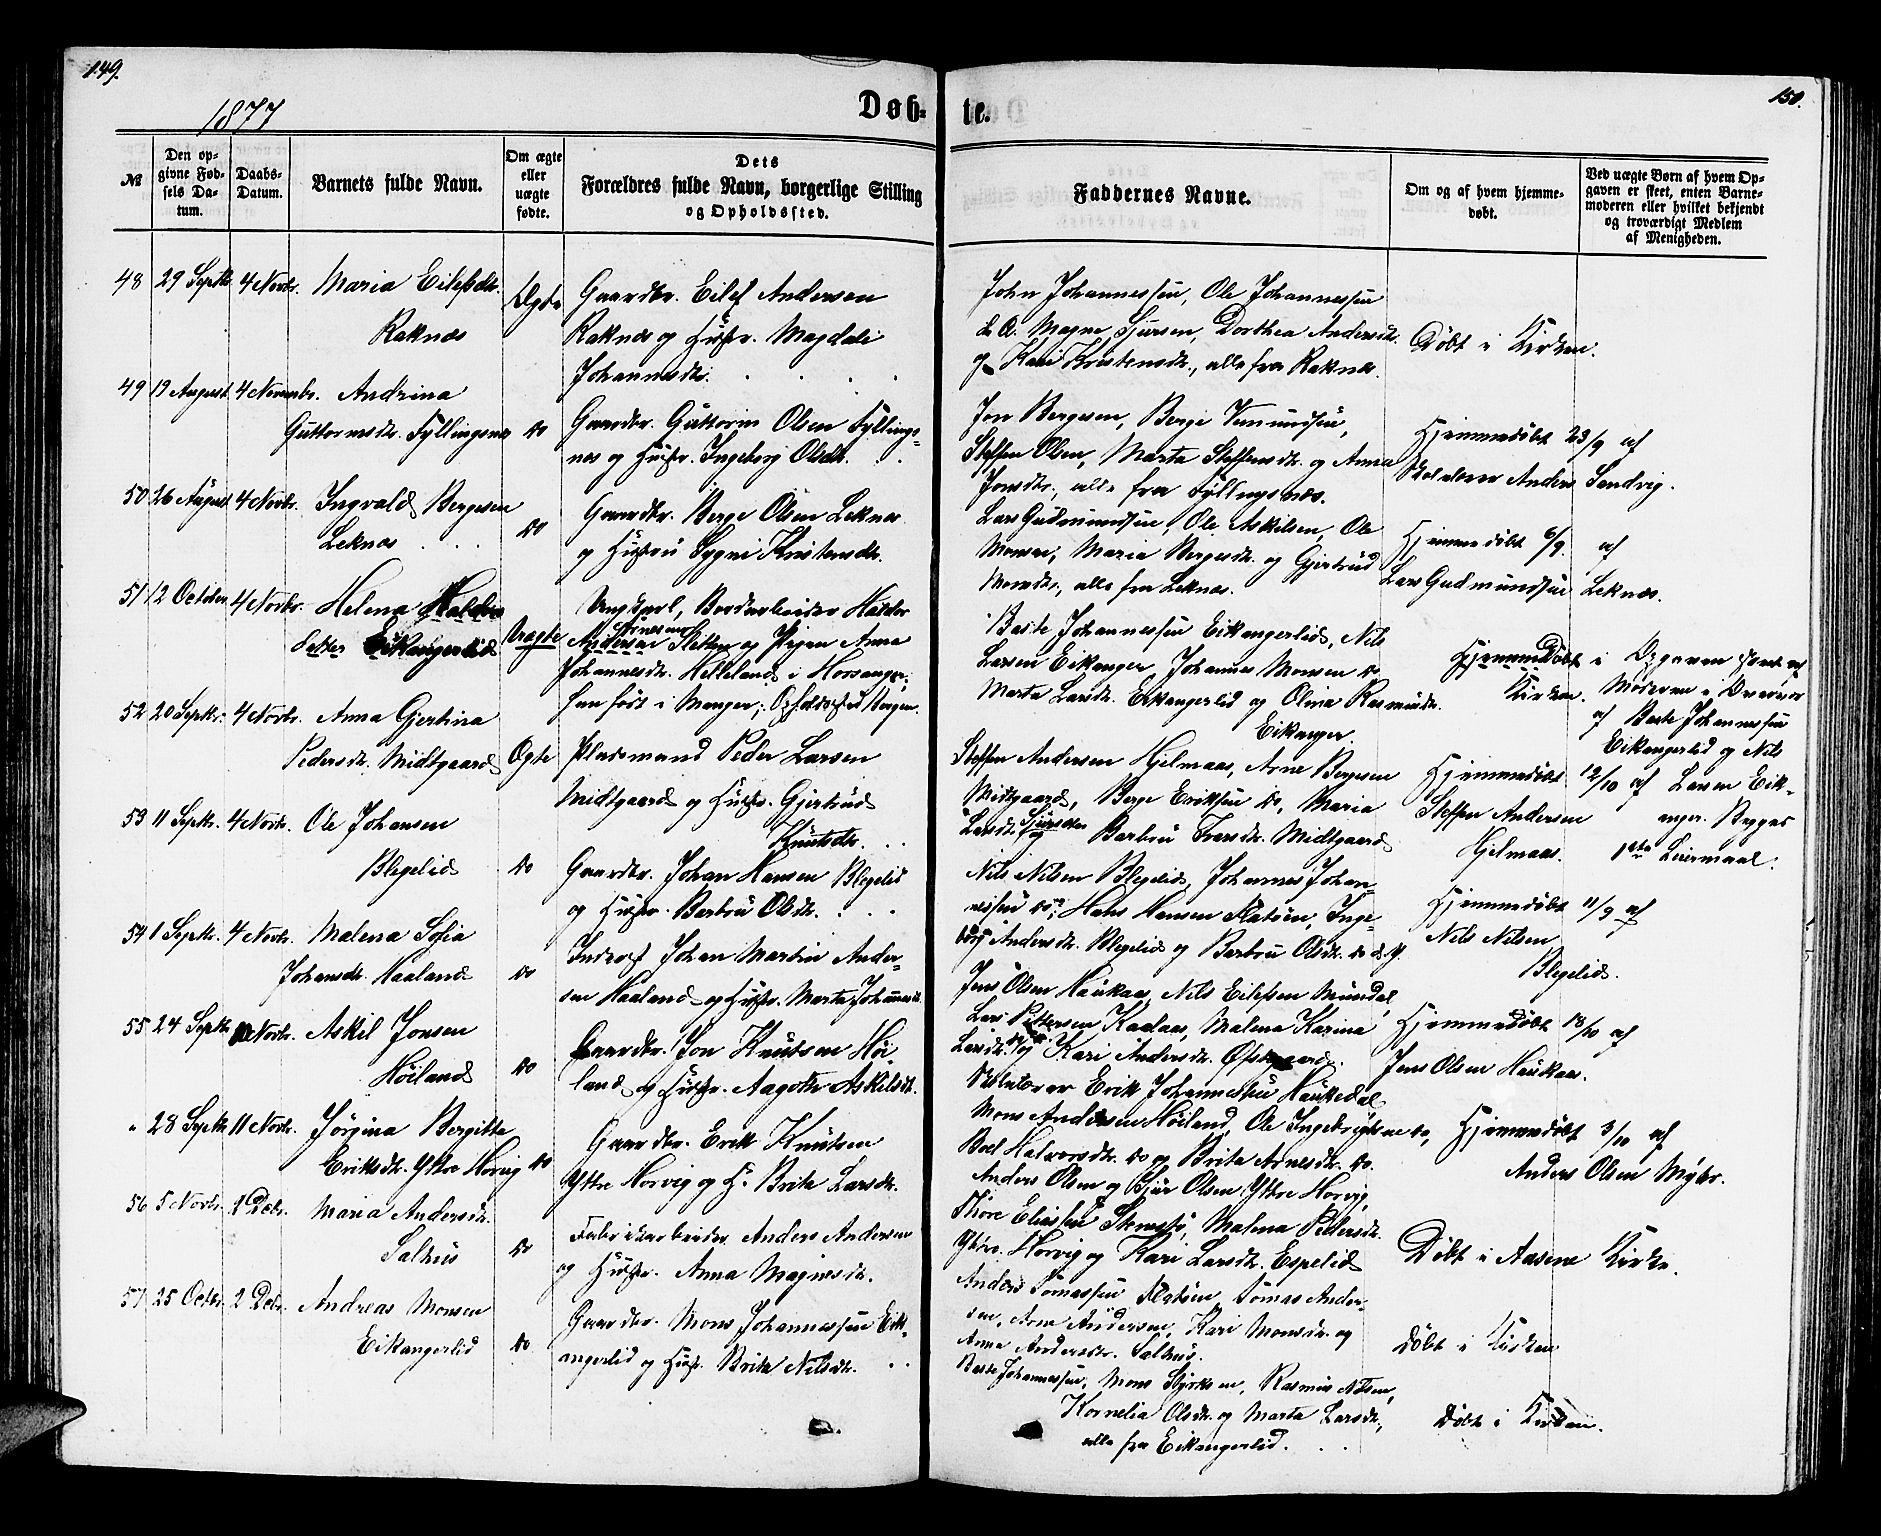 149.
150.
1877
Døb-
te.
№
Den op-
givne Fød-
sels Da-
tum.
Daabs-
Datum.
Barnets fulde Navn.
Om ægte
eller
uægte
fødte.
Dets
Forældres fulde Navn, borgerlige Stilling
og Opholdssted.
Faddernes Navne.
Om og af hvem hjemme-
døbt.
Ved uægte Børn af hvem Op-
gaven er skeet, enten Barne-
moderen eller hvilket bekjendt
og troværdigt Medlem
af Menigheden.
48 29 Septbr. 4 Novbr. Maria Eilefsdtr.
Raknæs
Ægte
Gaardbr. Eilef Andersen
Raknæs og Hustr. Magdali
Johannesdtr.
John Johannessen, Ole Johannessen
d. Æ. Magne Sjursen, Dorthea Andersdtr.
og Kari Kristensdtr., alle fra Raknæs.
Døbt i Kirken.
49 19 August 4 Novembr. Andrina
Guttormsdtr. Fyllingsnæs
do
Gaardbr. Guttorm Olsen Fyllings-
nes og Hustr. Ingeborg Olsdtr.
Jon Bergesen, Berge Vemundsen,
Steffen Olsen, Marta Steffensdtr. og Anna
Jonsdtr., alle fra Fyllingsnæs.
Hjemmedøbt 23/9 af
Skolelærer Anders Sandvig.
50 26 August 4 Novbr. Ingvald Bergesen
Leknæs
do
Gaardbr. Berge Olsen Leknæs
og Hustru Sygni Kristensdtr.
Lars Gudmundsen, Ole Askilsen, Ole
Monsen, Maria Bergesdtr. og Gjertrud
Monsdtr., alle fra Leknæs.
Hjemmedøbt 6/9 af
Lars Gudmundsen Leknæs.
51 12 October 4 Novbr. Helena Haldor
datter Eikangerlid
Uægte
Ungkarl, Bordarbeider Haldor
Arnesen
Andersen Sletten og Pigen Anna
Johannesdtr. Helleland i Hosanger,
han født i Manger; Opholdssted Bergen.
Baste Johannessen Eikangerlid, Nils
Larsen Eikanger, Johannes Monsen do
Marta Larsdtr. Eikangerlid og Olina Rasmusdtr.
Eikanger.
Hjemmedøbt i
Kirken.
Opgaven skeet af
Moderen i Overvær
af Baste Johannessen
Eikangerlid og Nils
Larsen Eik-
anger. Begges
1ste Leiermaal.
52 20 Septbr. 4 Novbr. Anna Gjertina
Pedersdtr. Midtgaard
Ægte
Pladsmand Peder Larsen
Midtgaard og Hustr. Gjertrud
Knutsdtr.
Steffen Andersen Hjelmaas, Arne Bergesen
Midtgaard, Berge Eriksen do, Maria
Larsdtr. og Barbru Iversdtr. Midtgaard
Hjemmedøbt 12/10 af
Steffen Andersen
Hjelmaas.
53 11 Septbr. 4 Novbr. Ole Johansen
Blegelid
do
Gaardbr. Johan Hansen Blegelid
og Hustr. Barbru Olsdtr.
Nils Nilsen Blegelid, Johannes Johan-
nessen do, Hans Hansen Flatøen, Inge-
borg Andersdtr. Blegelid og Barbru Olsdtr. do d. y.
Hjemmedøbt 11/9 af
Nils Nilsen
Blegelid.
54 1 Septbr. 4 Novbr. Malena Sofia
Johansdtr. Haaland
do
Inderst Johan Martin Ander-
sen Haaland og Hustr. Marta Johannesdtr.
Jens Olsen Haukaas, Nils Eilefsen Mundal,
Lars Pettersen Kaalaas, Malena Karina
Larsdtr. do og Kari Andersdtr. Øfstgaard.
Hjemmedøbt 18/10 af
Jens Olsen Haukaas.
55 24 Septbr. Novbr. Askil Jonsen
Høiland
do
Gaardbr. Jon Knutsen Høi-
land og Hustr. Aagothe Askilsdtr.
Skolelærer Erik Johannessen Haukedal
Mons Andersen Høiland, Ole Ingebrigtsen do,
Boel Halvorsdtr. do og Brita Arnesdtr. do.
Hjemmedøbt 3/10 af
Anders Olsen Myhr.
" 28 Septbr. 11 Novbr. Jørgina Bergitta
Eriksdtr. Ytre Horvig
do
Gaardbr. Erik Knutsen
Ytre Horvig og H. Brita Larsdtr.
Anders Olsen og Sjur Olsen Ytre Horvig,
Thore Eliassen, Malena Pedersdtr.
Ytre Horvig og Kari Larsdtr. Espelid
Døbt i Aasene Kirke.
56 5 Novbr. 2 Decbr. Maria Andersdtr.
Salhus
do
Fabrikarbeider Anders Andersen
og Hustr. Anna Magnesdtr.
Anders Tomassen Flatøen, Tomas Ander-
sen, Arne Andersen, Kari Monsdtr. og
Anna Andersdtr. Salhus.
Døbt i Kirken
57 25 Octbr. 2 Decbr. Andreas Monsen
Eikangerlid
do
Gaardbr. Mons Johannessen Eik-
angerlid og Hustr. Brita Nilsdtr.
Baste Johannessen, Mons Styrksen, Rasmus Nilsen,
Kornelia Olsdtr. og Marta Larsdtr.,
alle fra Eikangerlid.
Døbt i Kirken.